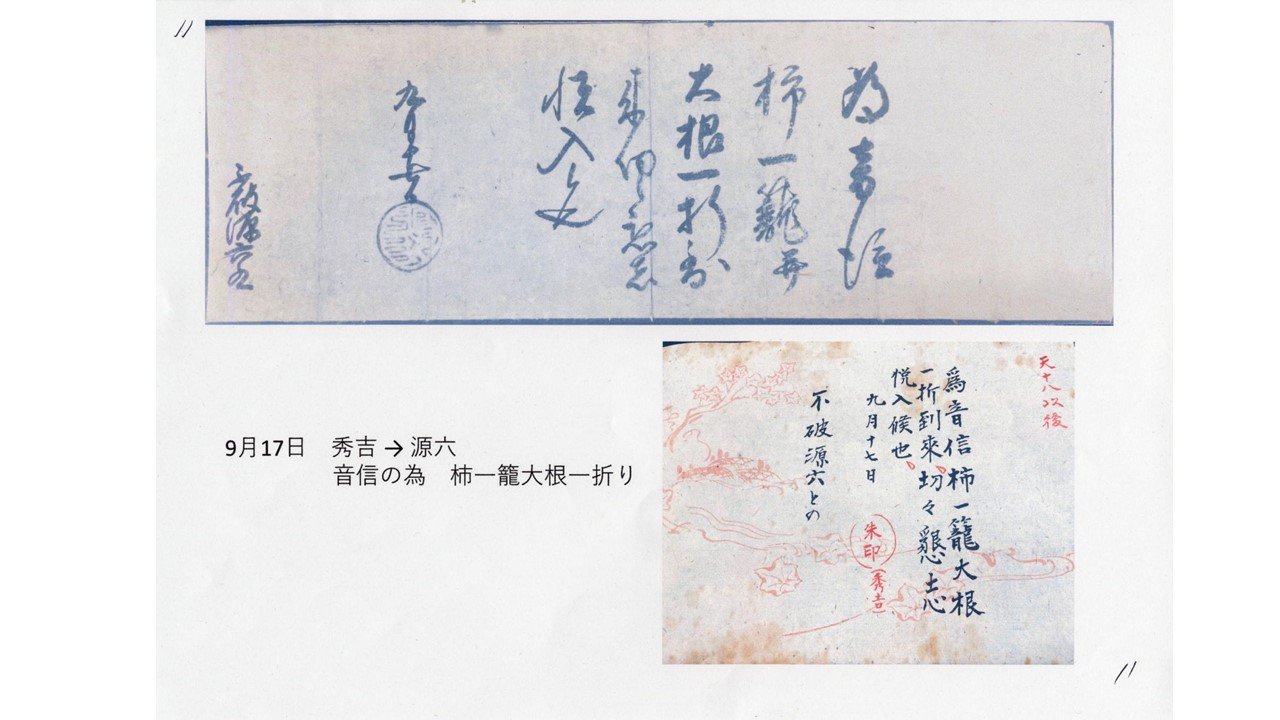 11
為音信
柿一籠并
大根一折到
来切々懇志
悦入候也
九月十七日
天十八以後
爲音信柿一籠大根
一折到來切々懇志
悦入候也
九月十七日
朱印
(秀吉)
不破源六との
9月17日　秀吉→源六
音信の為　柿一籠大根一折り
11